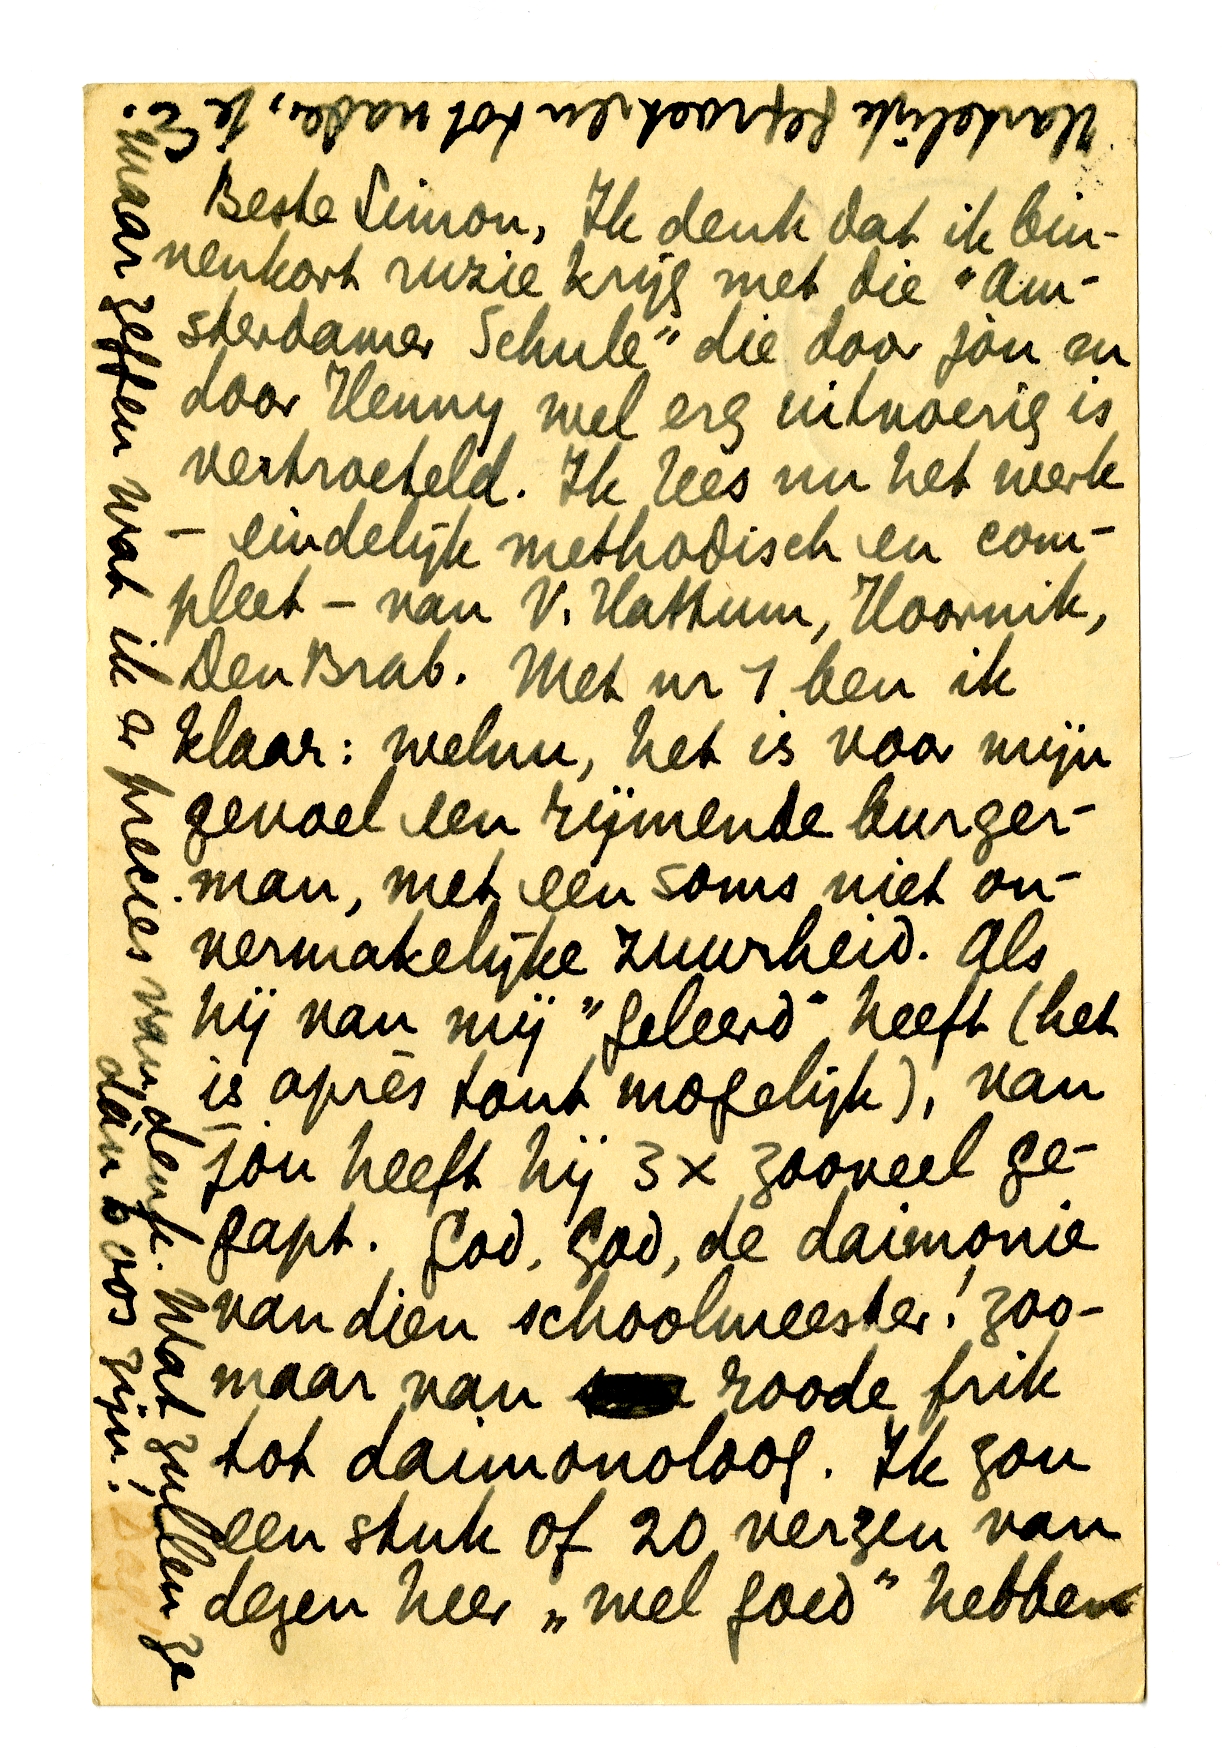 Beste Simon, Ik denk dat ik bin-
nenkort ruzie krijg met die "Am-
sterdamer Schule" die door jou en
door Henny wel erg uitvoerig is
vertroeteld. Ik lees nu het werk
– eindelijk methodisch en com-
pleet – van V. Hattum, Hoornik,
Den Brab. Met nr 1 ben ik
klaar: welnu, het is voor mijn
gevoel een rijmende burger-
man, met een soms niet on-
vermakelijke zuurheid. Als
hij van mij "geleerd" heeft (het
is après tout mogelijk), van
jou heeft hij 3 x zooveel ge-
gapt. God, God, de daimonie
van dien schoolmeester! Zoo-
maar van roode frik
tot daimonoloog. Ik zou
een stuk of 20 verzen van
dezen heer „wel goed" hebben
maar zeggen wat ik er precies van denk. Wat zullen ze
dàn boos zijn!
Hartelijk gegroet en tot nader, je E.